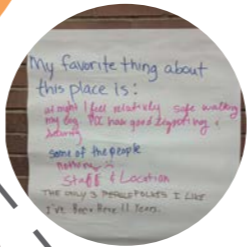 My favorite thing about
this place is:
at night I feel relatively safe walking
my dog. has good lighting &
some of the people
nothing
Staff & Location
THE ONLY 3 PEOPLE I LIKE
I've Been Here 11 Years.